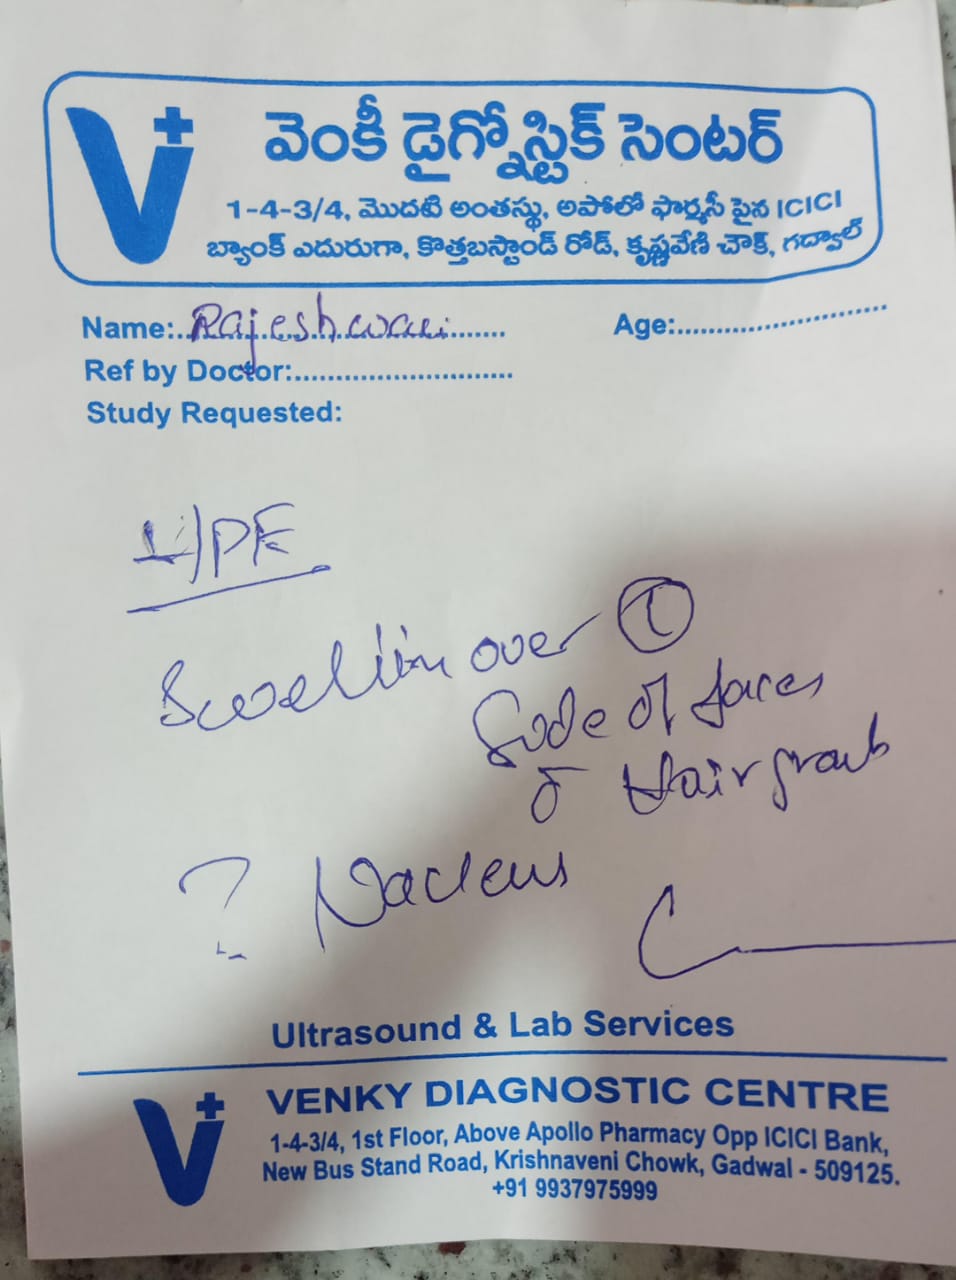 వెంకీ డైగ్నోస్టిక్ సెంటర్
1-4-3/4, మొదటి అంతస్థు, అపోలో ఫార్మసీ పైన ICICI
బ్యాంక్ ఎదురుగా, కొత్తబస్టాండ్ రోడ్, కృష్ణవేణి చౌక్, గద్వాల్
Name: Rajeshwari Age:
Ref by Doctor:
Study Requested:
HPE
Swellin over L
Side of faces
c Hair
? 
Ultrasound & Lab Services
VENKY DIAGNOSTIC CENTRE
1-4-3/4, 1st Floor, Above Apollo Pharmacy Opp ICICI Bank,
New Bus Stand Road, Krishnaveni Chowk, Gadwal - 509125.
+91 9937975999